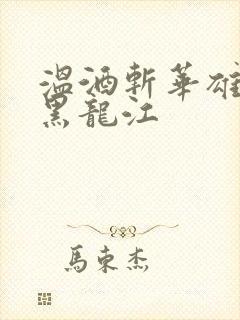 溫酒斬華雄
黑龍江
馬東杰